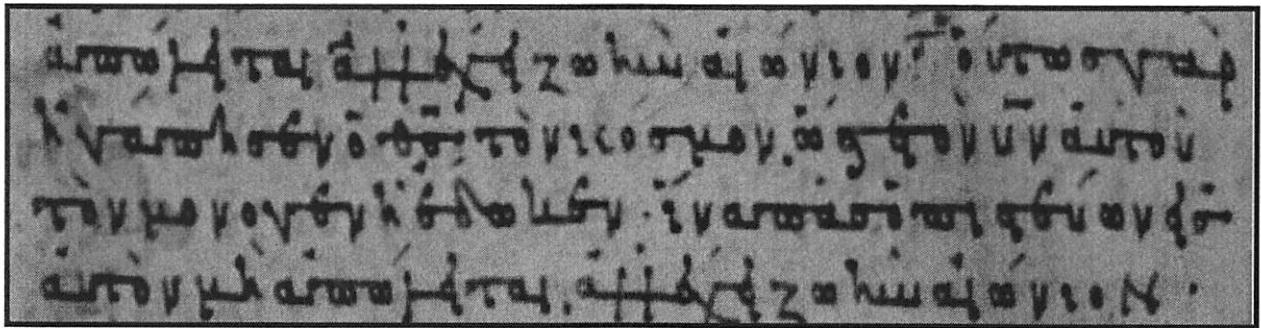 ἀπόληται ἀλλ' ἔχη ζωὴν αἰώνιον· οὕτως γὰρ
ἠγάπησεν ὁ θ̅ς̅ τὸν κόσμον, ὥστε τὸν υ̅ν̅ αὐτοῦ
τὸν μονογενῆ ἔδωκεν· ἵνα πᾶς ὁ πιστεύων εἰς
αὐτὸν μὴ ἀπόληται, ἀλλ' ἔχη ζωὴν αἰώνιον.